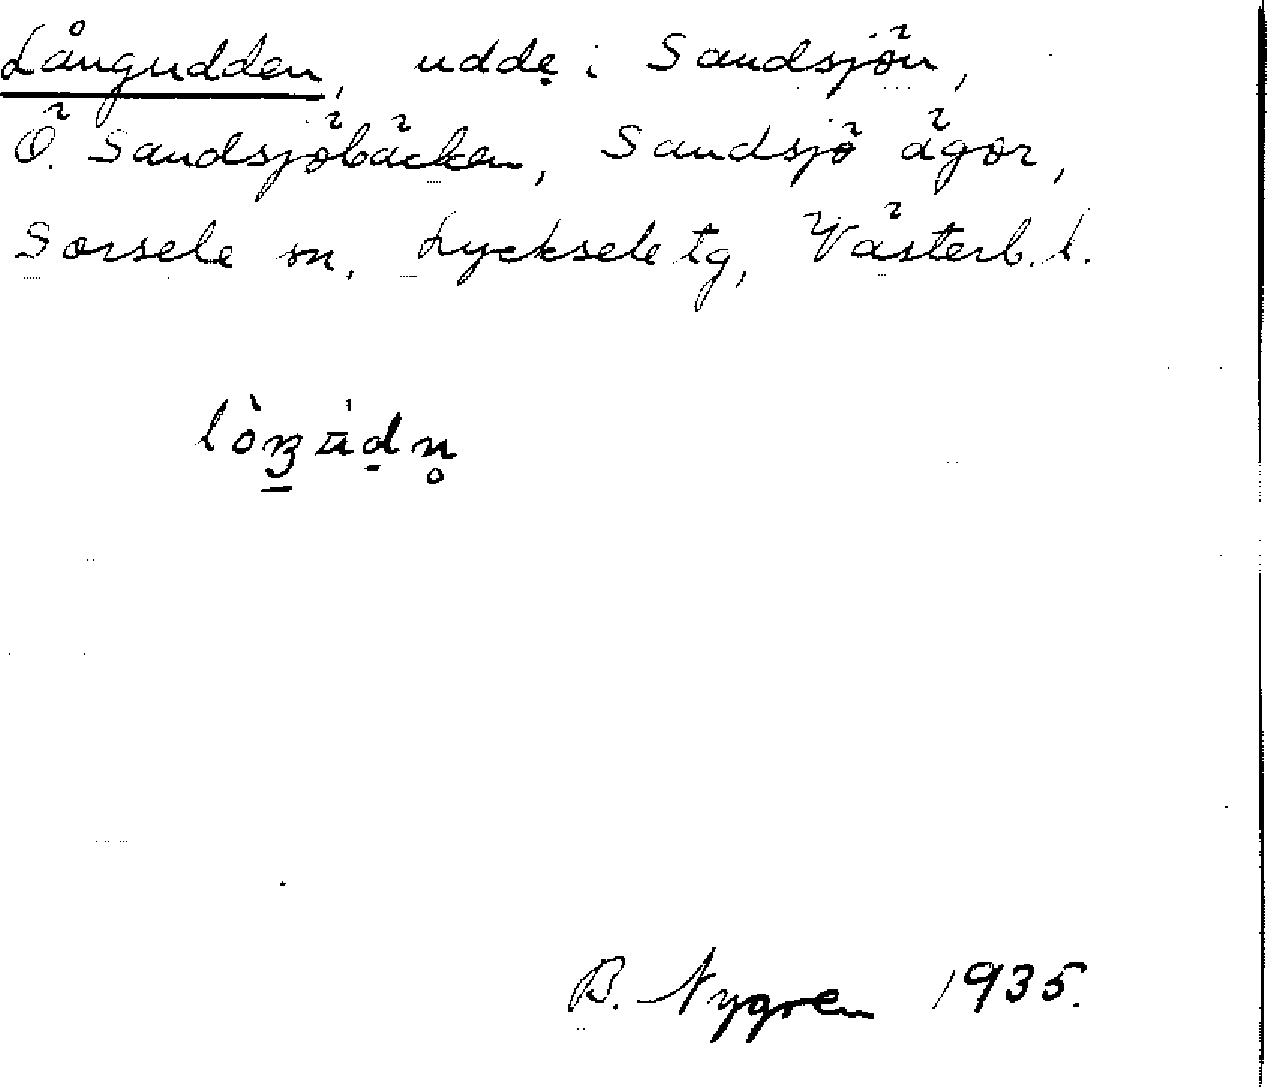 Långudden, udde i Sandsjön,
Ö. Sandsjöbäcken, Sandsjö ägor,
Sorsele sn, Lycksele tg, Västerb. l.
B. Nygren 1935.